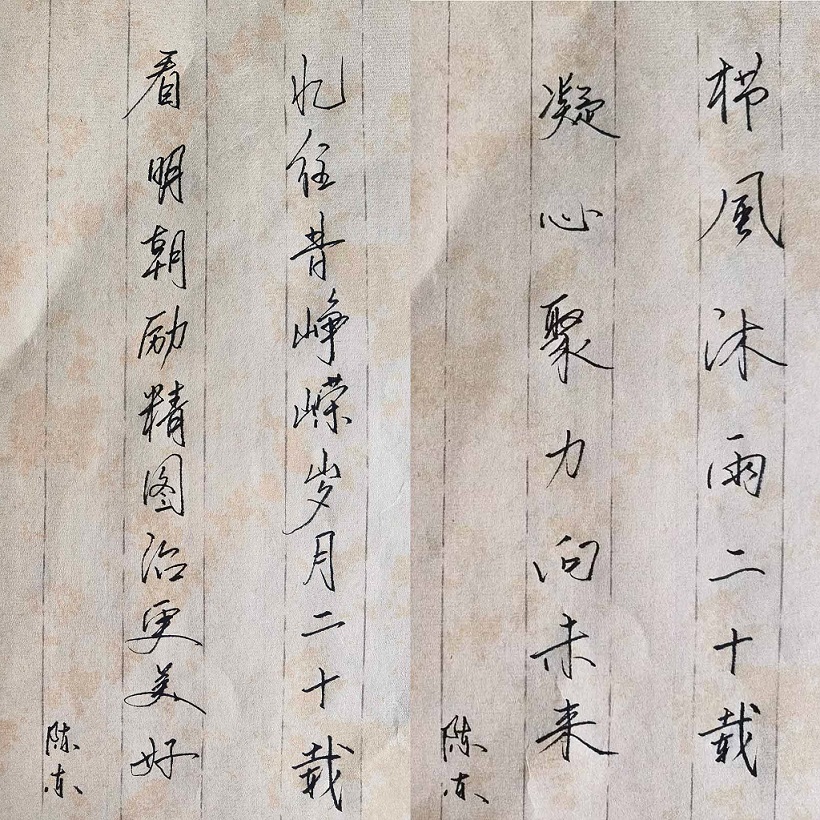 栉風沐雨二十载
凝心聚力向未来
陈东
忆往昔峥嵘岁月二十载
看明朝励精图治更美好
陈东